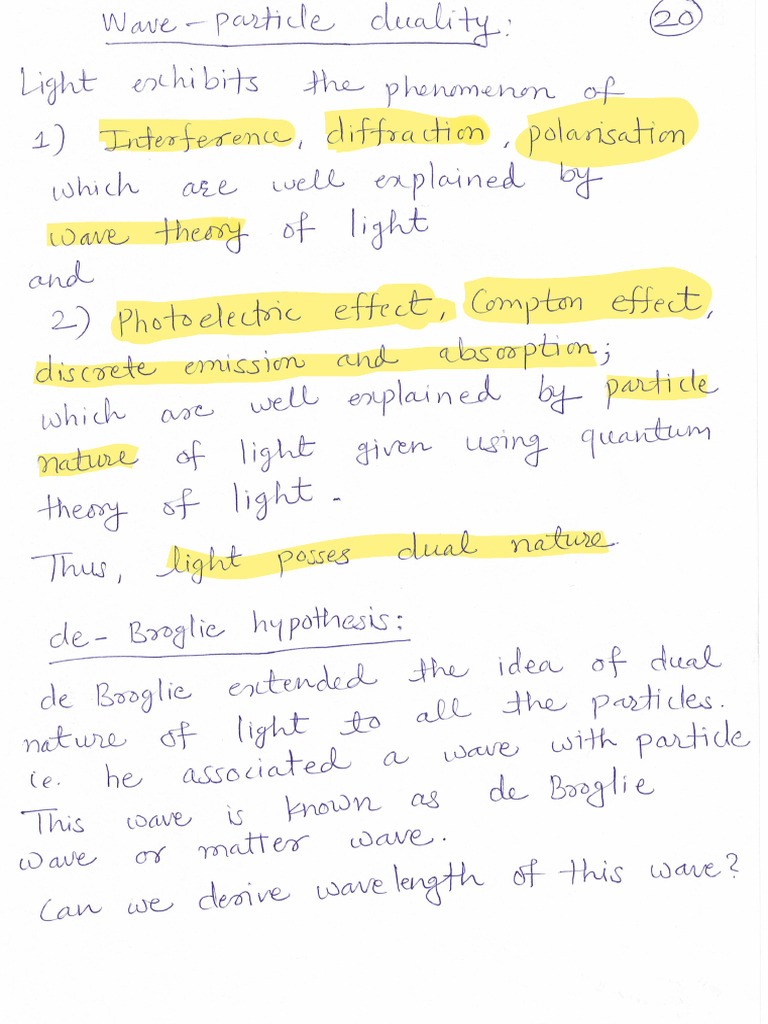 Wave-particle duality: 20
Light exhibits the phenomenon of
1) Interference, diffraction, polarisation
which are well explained by
wave theory of light
and
2) Photoelectric effect, Compton effect,
discrete emission and absorption;
which are well explained by particle
nature of light given using quantum
theory of light.
Thus, light posses dual nature.
de-Broglie hypothesis:
de Broglie extended the idea of dual
nature of light to all the particles.
ie. he associated a wave with particle
This wave is known as de Broglie
wave or matter wave.
Can we derive wavelength of this wave?